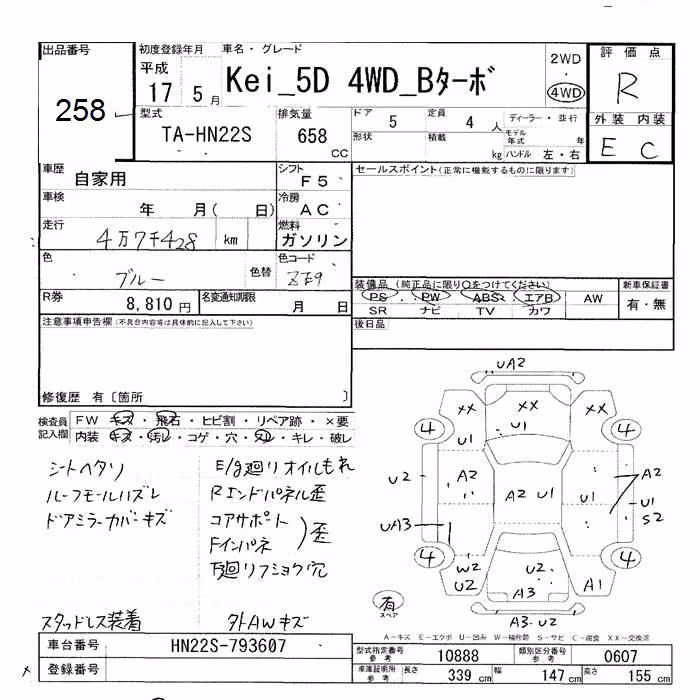 出品番号 初度登録年月 車名・グレード 2WD 評価点
258 平成17 5月 Kei_5D 4WD_Bターボ ・ 4WD R
型式 排気量 ドア 5 定員 4 人 ディーラー・並行 外装 内装
TA-HN22S 658 CC 形状 積載 kg モデル年式 年 ハンドル 左・右 E C
車歴 自家用 シフト F5 セールスポイント(正常に機能するものに限ります)
車検 年 月( 日) 冷房 AC
走行 4万7千428 km 燃料 ガソリン
色 ブルー 色替 色コード
装備品 (純正品に限り○をつけてください) 新車保証書
PS ・ PW ・ ABS・ エアB AW 有・無
SR ナビ TV カワ
R券 8,810円 名変通知期限 月 日
後日品
注意事項申告欄(不具合内容等は具体的に記入して下さい)
修復歴 有〔箇所 〕
検査員記入欄 FW キズ・飛石・ヒビ割・リペア跡・×要
内装 キズ・汚レ・コゲ・穴・スレ・キレ・破レ
シートヘタリ E/g廻りオイルもれ
ルーフモールハズレ Rエンドパネル歪
ドアミラーカバーキズ コアサポート
Fインパネ 歪
下廻リフショク穴
スタッドレス装着 タトAWキズ
UA2
XX XX XX
4 U1 U1 4
U2 A2 A2 U1 U1 A2
U1
S2
UA3
4 W2 U2 4
U2 A3 A1
有
スペア
A3・U2
A－キズ E－エクボ U－凹み W－補修跡 S－サビ C－腐食 XX－交換済
車台番号 HN22S-793607 型式指定番号 参考 10888 類別区分番号 参考 0607
登録番号 車庫証明用 参考 長さ 339 cm 幅 147 cm 高さ 155 cm